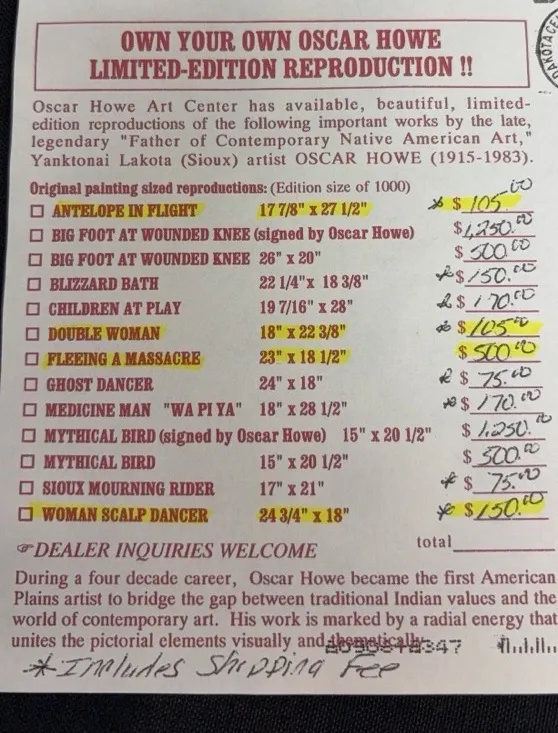 OWN YOUR OWN OSCAR HOWE
LIMITED-EDITION REPRODUCTION !!
Oscar Howe Art Center has available, beautiful, limited-
edition reproductions of the following important works by the late,
legendary "Father of Contemporary Native American Art,"
Yanktonai Lakota (Sioux) artist OSCAR HOWE (1915-1983).
Original painting sized reproductions: (Edition size of 1000)
☐ ANTELOPE IN FLIGHT 17 7/8" x 27 1/2" * $ 105.00
☐ BIG FOOT AT WOUNDED KNEE (signed by Oscar Howe) $1,250.00
☐ BIG FOOT AT WOUNDED KNEE 26" x 20" $ 500.00
☐ BLIZZARD BATH 22 1/4"x 18 3/8" * $ 150.00
☐ CHILDREN AT PLAY 19 7/16" x 28" * $ 170.00
☐ DOUBLE WOMAN 18" x 22 3/8" * $ 105.00
☐ FLEEING A MASSACRE 23" x 18 1/2" $ 500.00
☐ GHOST DANCER 24" x 18" * $ 75.00
☐ MEDICINE MAN "WA PI YA" 18" x 28 1/2" * $ 170.00
☐ MYTHICAL BIRD (signed by Oscar Howe) 15" x 20 1/2" $ 1,250.00
☐ MYTHICAL BIRD 15" x 20 1/2" $ 500.00
☐ SIOUX MOURNING RIDER 17" x 21" * $ 75.00
☐ WOMAN SCALP DANCER 24 3/4" x 18" * $ 150.00
☞DEALER INQUIRIES WELCOME total
During a four decade career, Oscar Howe became the first American
Plains artist to bridge the gap between traditional Indian values and the
world of contemporary art. His work is marked by a radial energy that
unites the pictorial elements visually and thematically.
* Includes Shipping Fee